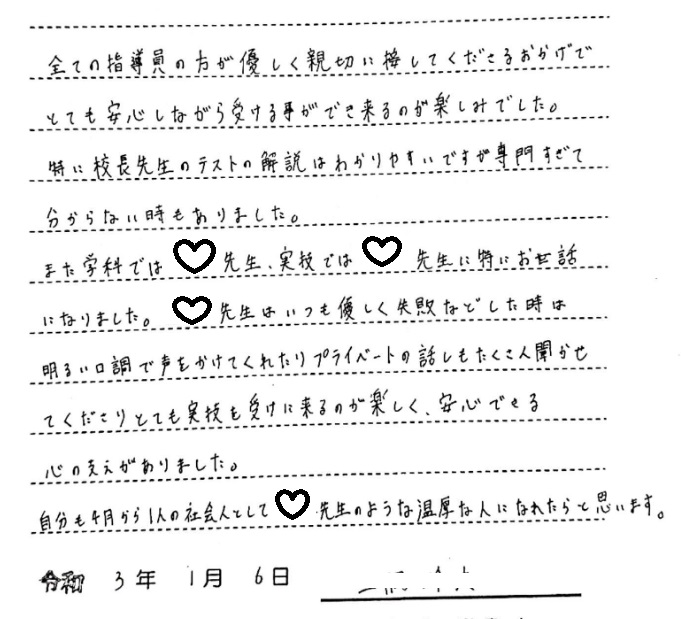 全ての指導員の方が優しく親切に接してくださるおかげで
とても安心しながら受ける事ができ来るのが楽しみでした。
特に校長先生のテストの解説はわかりやすいですが専門すぎて
分からない時もありました。
また学科では♡先生、実技では♡先生に特にお世話
になりました。♡先生はいつも優しく失敗などした時は
明るい口調で声をかけてくれたりプライベートの話しもたくさん聞かせ
てくださりとても実技も受けに来るのが楽しく、安心できる
心の支えがありました。
自分も4月から1人の社会人として♡先生のような温厚な人になれたらと思います。
令和 3年 1月 6日